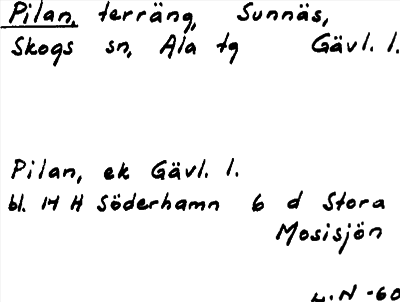 Pilan, terräng, Sunnäs,
Skogs sn, Ala tg Gävl. l.
Pilan, ek Gävl. l.
bl. 14 H Söderhamn 6 d Stora
Mosisjön
H.N -60